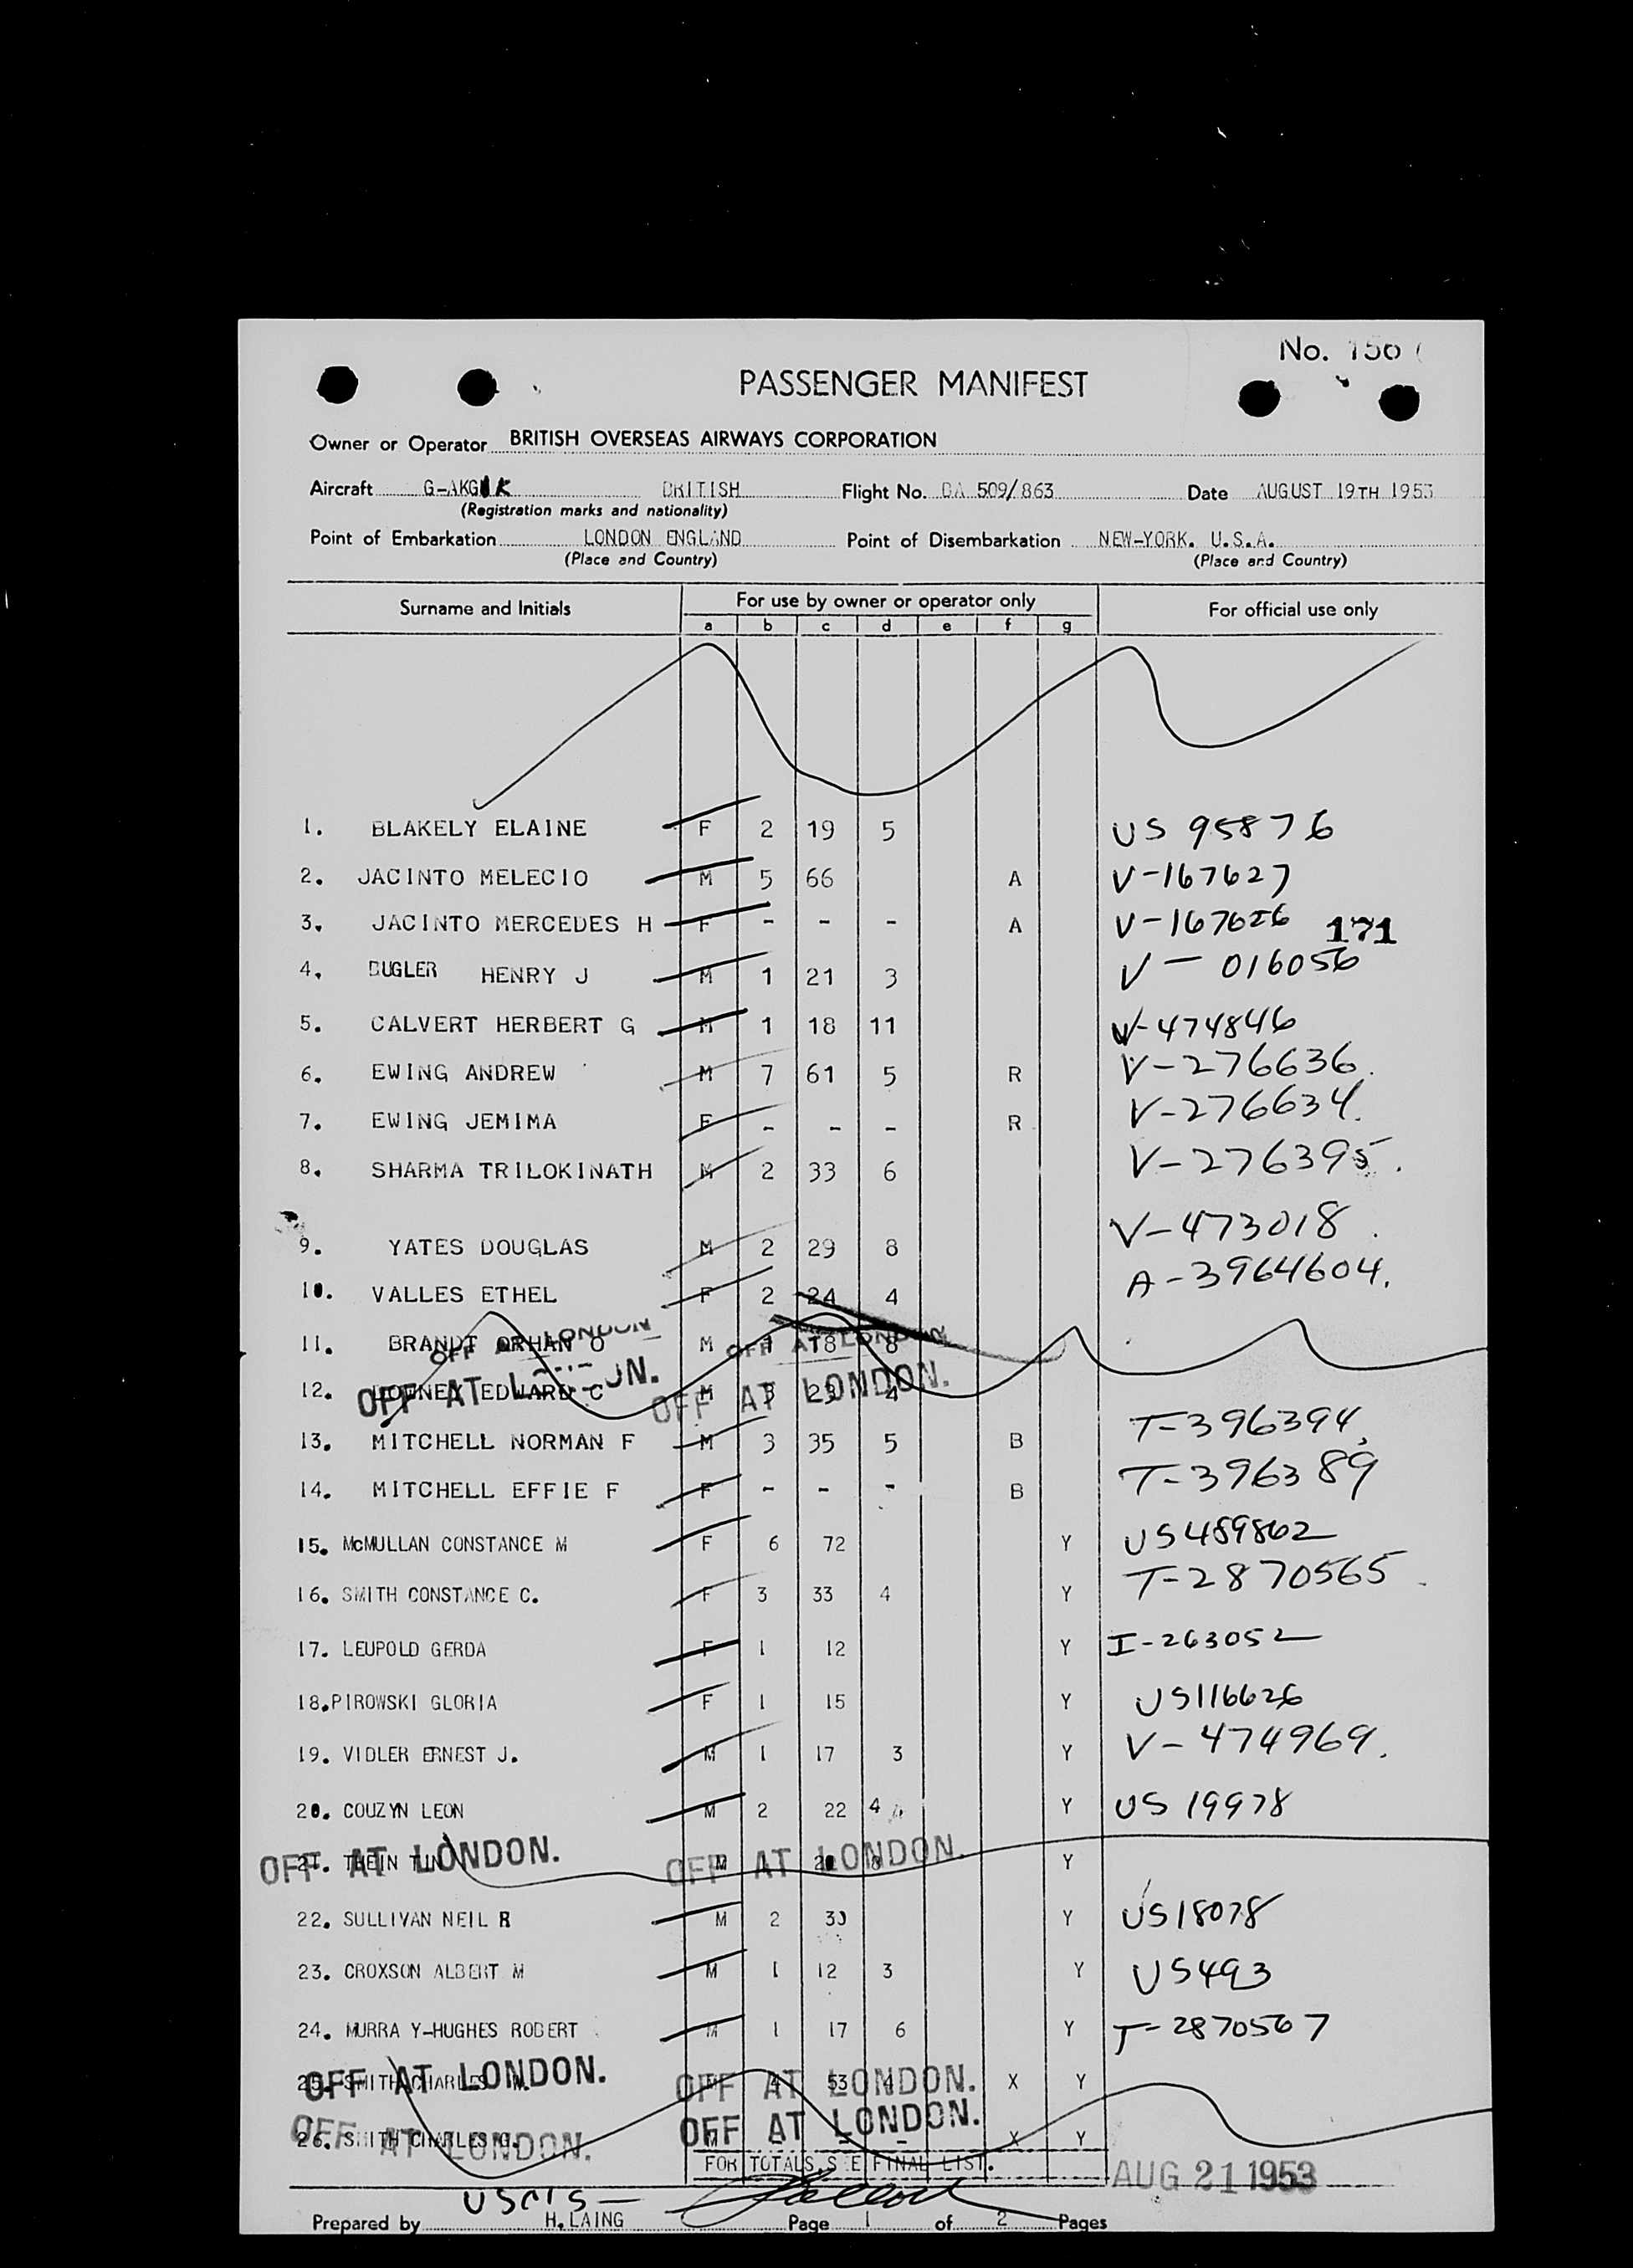 No. 156
PASSENGER MANIFEST
Owner or Operator BRITISH OVERSEAS AIRWAYS CORPORATION
Aircraft G-AKGK BRITISH Flight No. BA 509/863 Date AUGUST 19TH 1953
(Registration marks and nationality)
Point of Embarkation LONDON ENGLAND Point of Disembarkation NEW-YORK. U.S.A.
(Place and Country) (Place and Country)
Surname and Initials For use by owner or operator only For official use only
a b c d e f g
1. BLAKELY ELAINE F 2 19 5 US 95876
2. JACINTO MELECIO M 5 66 A V-167627
3. JACINTO MERCEDES H F - - - A V-167626 171
4. BUGLER HENRY J M 1 21 3 V-016056
5. CALVERT HERBERT G M 1 18 11 V-474846
6. EWING ANDREW M 7 61 5 R V-276636.
7. EWING JEMIMA F - - - R V-276634.
8. SHARMA TRILOKINATH M 2 33 6 V-276395.
9. YATES DOUGLAS M 2 29 8 V-473018.
10. VALLES ETHEL F 2 24 4 A-3964604.
11. BRANDT ORHAN O M 1 18 8
OFF AT LONDON OFF AT LONDON
12. EDWARD C M 3 23 4
OFF AT LONDON. OFF AT LONDON.
13. MITCHELL NORMAN F M 3 35 5 B T-396394.
14. MITCHELL EFFIE F F - - - B T-396389
15. McMULLAN CONSTANCE M F 6 72 Y US489862
16. SMITH CONSTANCE C. F 3 33 4 Y T-2870565.
17. LEUPOLD GERDA F 1 12 Y I-263052
18. PIROWSKI GLORIA F 1 15 Y US116626
19. VIDLER ERNEST J. M 1 17 3 Y V-474969.
20. COUZYN LEON M 2 22 4 Y US 19978
21. THEIN TUN M 8 Y
OFF AT LONDON. OFF AT LONDON.
22. SULLIVAN NEIL R M 2 30 Y US18078
23. CROXSON ALBERT M M 1 12 3 Y US493
24. MURRA Y-HUGHES ROBERT M 1 17 6 Y T-2870567
25. SMITH CHARLES M. 4 53 4 X Y
OFF AT LONDON. OFF AT LONDON.
26. SMITH CHARLES G. M - - - X Y
OFF AT LONDON. OFF AT LONDON.
FOR TOTALS, SEE FINAL LIST.
AUG 21 1953
Prepared by H. LAING Page 1 of 2 Pages